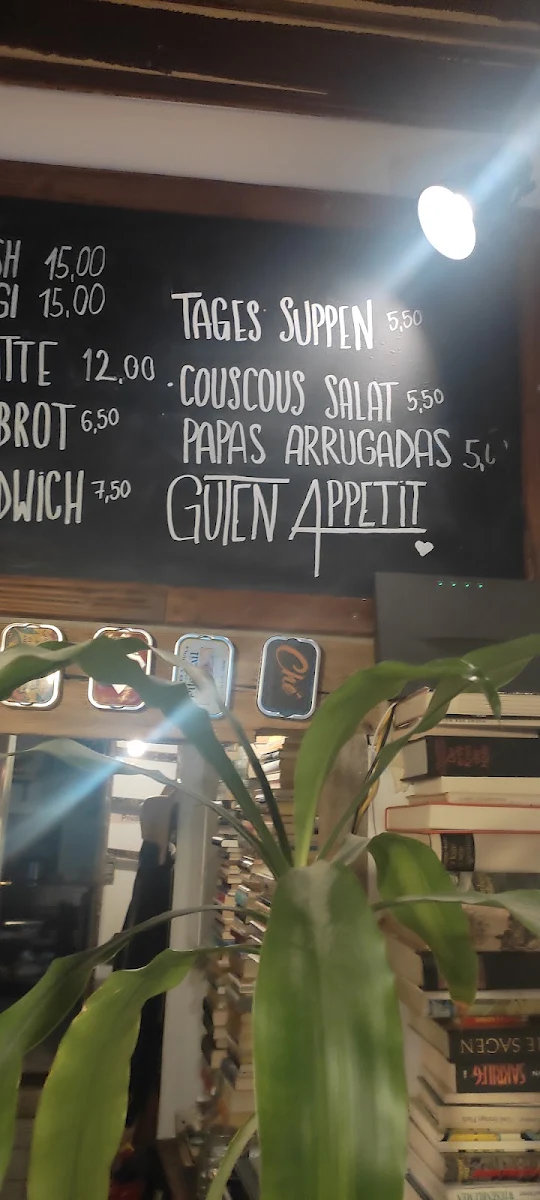 SH 15,00
GI 15,00
TTE 12,00
BROT 6,50
DWICH 7,50
TAGES SUPPEN 5,50
COUSCOUS SALAT 5,50
PAPAS ARRUGADAS
GUTEN APPETIT
Ché
SAGEN